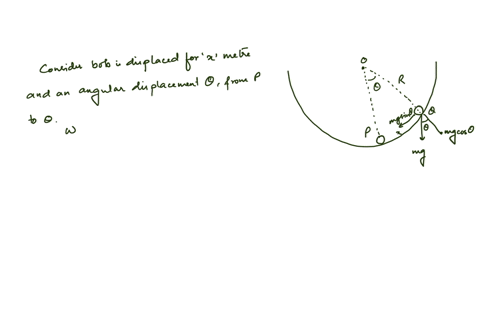 Consider bob is displaced for 'x' metre
and an angular displacement θ, from P
to Q.
W
O
θ
R
P
mg sinθ
Q
θ
mg cosθ
mg